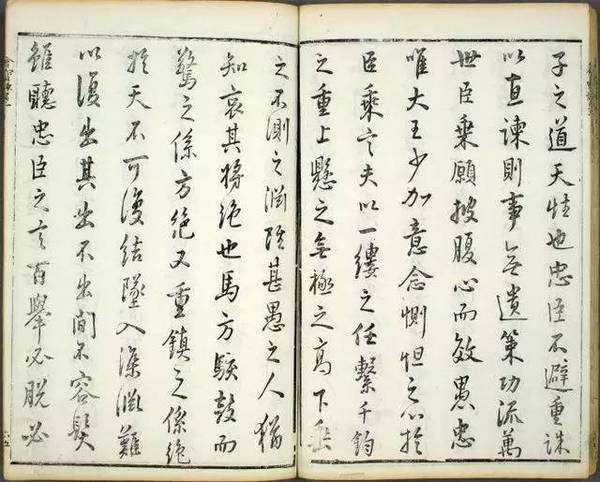 子之道天性也忠臣不避重誅
以直諫則事無遺策功流萬
世臣乘願披腹心而效愚忠
唯大王少加意念惻怛之心於
臣乘言夫以一縷之任繫千鈞
之重上懸之無極之高下垂
之不測之淵雖甚愚之人猶
知哀其將絕也馬方駭鼓而
驚之係方絕又重鎮之係絕
於天不可復結墜入深淵難
以復出其出不出間不容髮
雖聽忠臣之言百舉必脫必